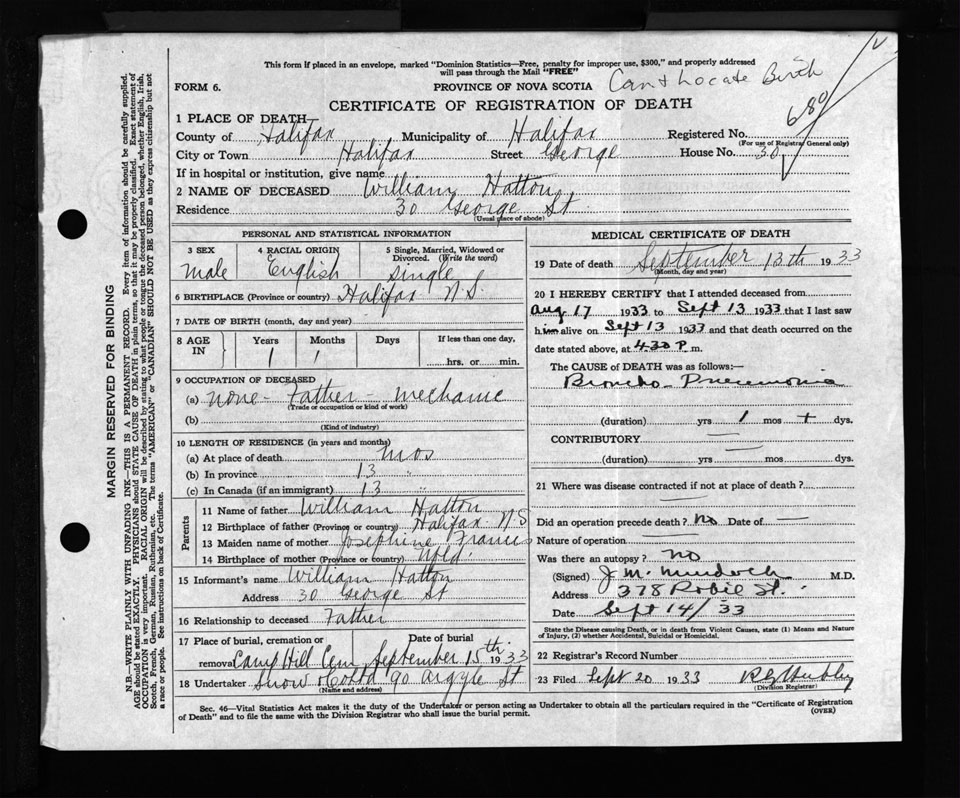 This form if placed in an envelope, marked "Dominion Statistics—Free, penalty for improper use, $300," and properly addressed
will pass through the Mail "FREE"
FORM 6.
PROVINCE OF NOVA SCOTIA
Cant Locate Birth
CERTIFICATE OF REGISTRATION OF DEATH
680
1 PLACE OF DEATH
County of Halifax Municipality of Halifax Registered No.
(For use of Registrar General only)
City or Town Halifax Street George House No. 30
If in hospital or institution, give name
2 NAME OF DECEASED William Hatton
Residence 30 George St
(Usual place of abode)
PERSONAL AND STATISTICAL INFORMATION
3 SEX 4 RACIAL ORIGIN 5 Single, Married, Widowed or
Divorced. (Write the word)
Male English Single
6 BIRTHPLACE (Province or country) Halifax N.S.
7 DATE OF BIRTH (month, day and year)
8 AGE IN Years Months Days If less than one day,
1 1 hrs. or min.
9 OCCUPATION OF DECEASED
(a) None - Father - Mechanic
(Trade or occupation or kind of work)
(b)
(Kind of industry)
10 LENGTH OF RESIDENCE (in years and months)
(a) At place of death mos
(b) In province 13 "
(c) In Canada (if an immigrant) 13 "
Parents
11 Name of father William Hatton
12 Birthplace of father (Province or country) Halifax N.S
13 Maiden name of mother Josephine Francis
14 Birthplace of mother (Province or country) Nfld.
15 Informant's name William Hatton
Address 30 George St
16 Relationship to deceased Father
17 Place of burial, cremation or Date of burial
removal Camp Hill Cem September 15th 1933
18 Undertaker Snow & Co Ltd 90 Argyle St
(Name and address)
MEDICAL CERTIFICATE OF DEATH
19 Date of death September 13th 1933
(Month, day and year)
20 I HEREBY CERTIFY that I attended deceased from
Aug 17 1933 to Sept 13 1933 that I last saw
him alive on Sept 13 1933 and that death occurred on the
date stated above, at 4.30 P. m.
The CAUSE of DEATH was as follows:—
Broncho - Pneumonia
(duration) yrs 1 mos + dys.
CONTRIBUTORY —
(duration) — yrs mos dys.
21 Where was disease contracted if not at place of death?
—
Did an operation precede death? No Date of —
Nature of operation —
Was there an autopsy? No
(Signed) J. M. Murdoch M.D.
Address 378 Robie St.
Date Sept 14/33
State the Disease causing Death, or in death from Violent Causes, state (1) Means and Nature
of Injury, (2) whether Accidental, Suicidal or Homicidal.
22 Registrar's Record Number
23 Filed Sept 20 1933
(Division Registrar)
Sec. 46—Vital Statistics Act makes it the duty of the Undertaker or person acting as Undertaker to obtain all the particulars required in the "Certificate of Registration
of Death" and to file the same with the Division Registrar who shall issue the burial permit. (OVER)
MARGIN RESERVED FOR BINDING
N.B.—WRITE PLAINLY WITH UNFADING INK—THIS IS A PERMANENT RECORD. Every item of information should be carefully supplied.
AGE should be stated EXACTLY. PHYSICIANS should STATE CAUSE OF DEATH in plain terms, so that it may be properly classified. Exact statement of
OCCUPATION is very important. RACIAL ORIGIN will be described by stating to what people or tongue the deceased person belonged, whether English, Irish,
Scotch, French, German, Russian, Ruthenian, etc. The terms "AMERICAN" or "CANADIAN" SHOULD NOT BE USED as they express citizenship but not
a race or people. See instructions on back of Certificate.